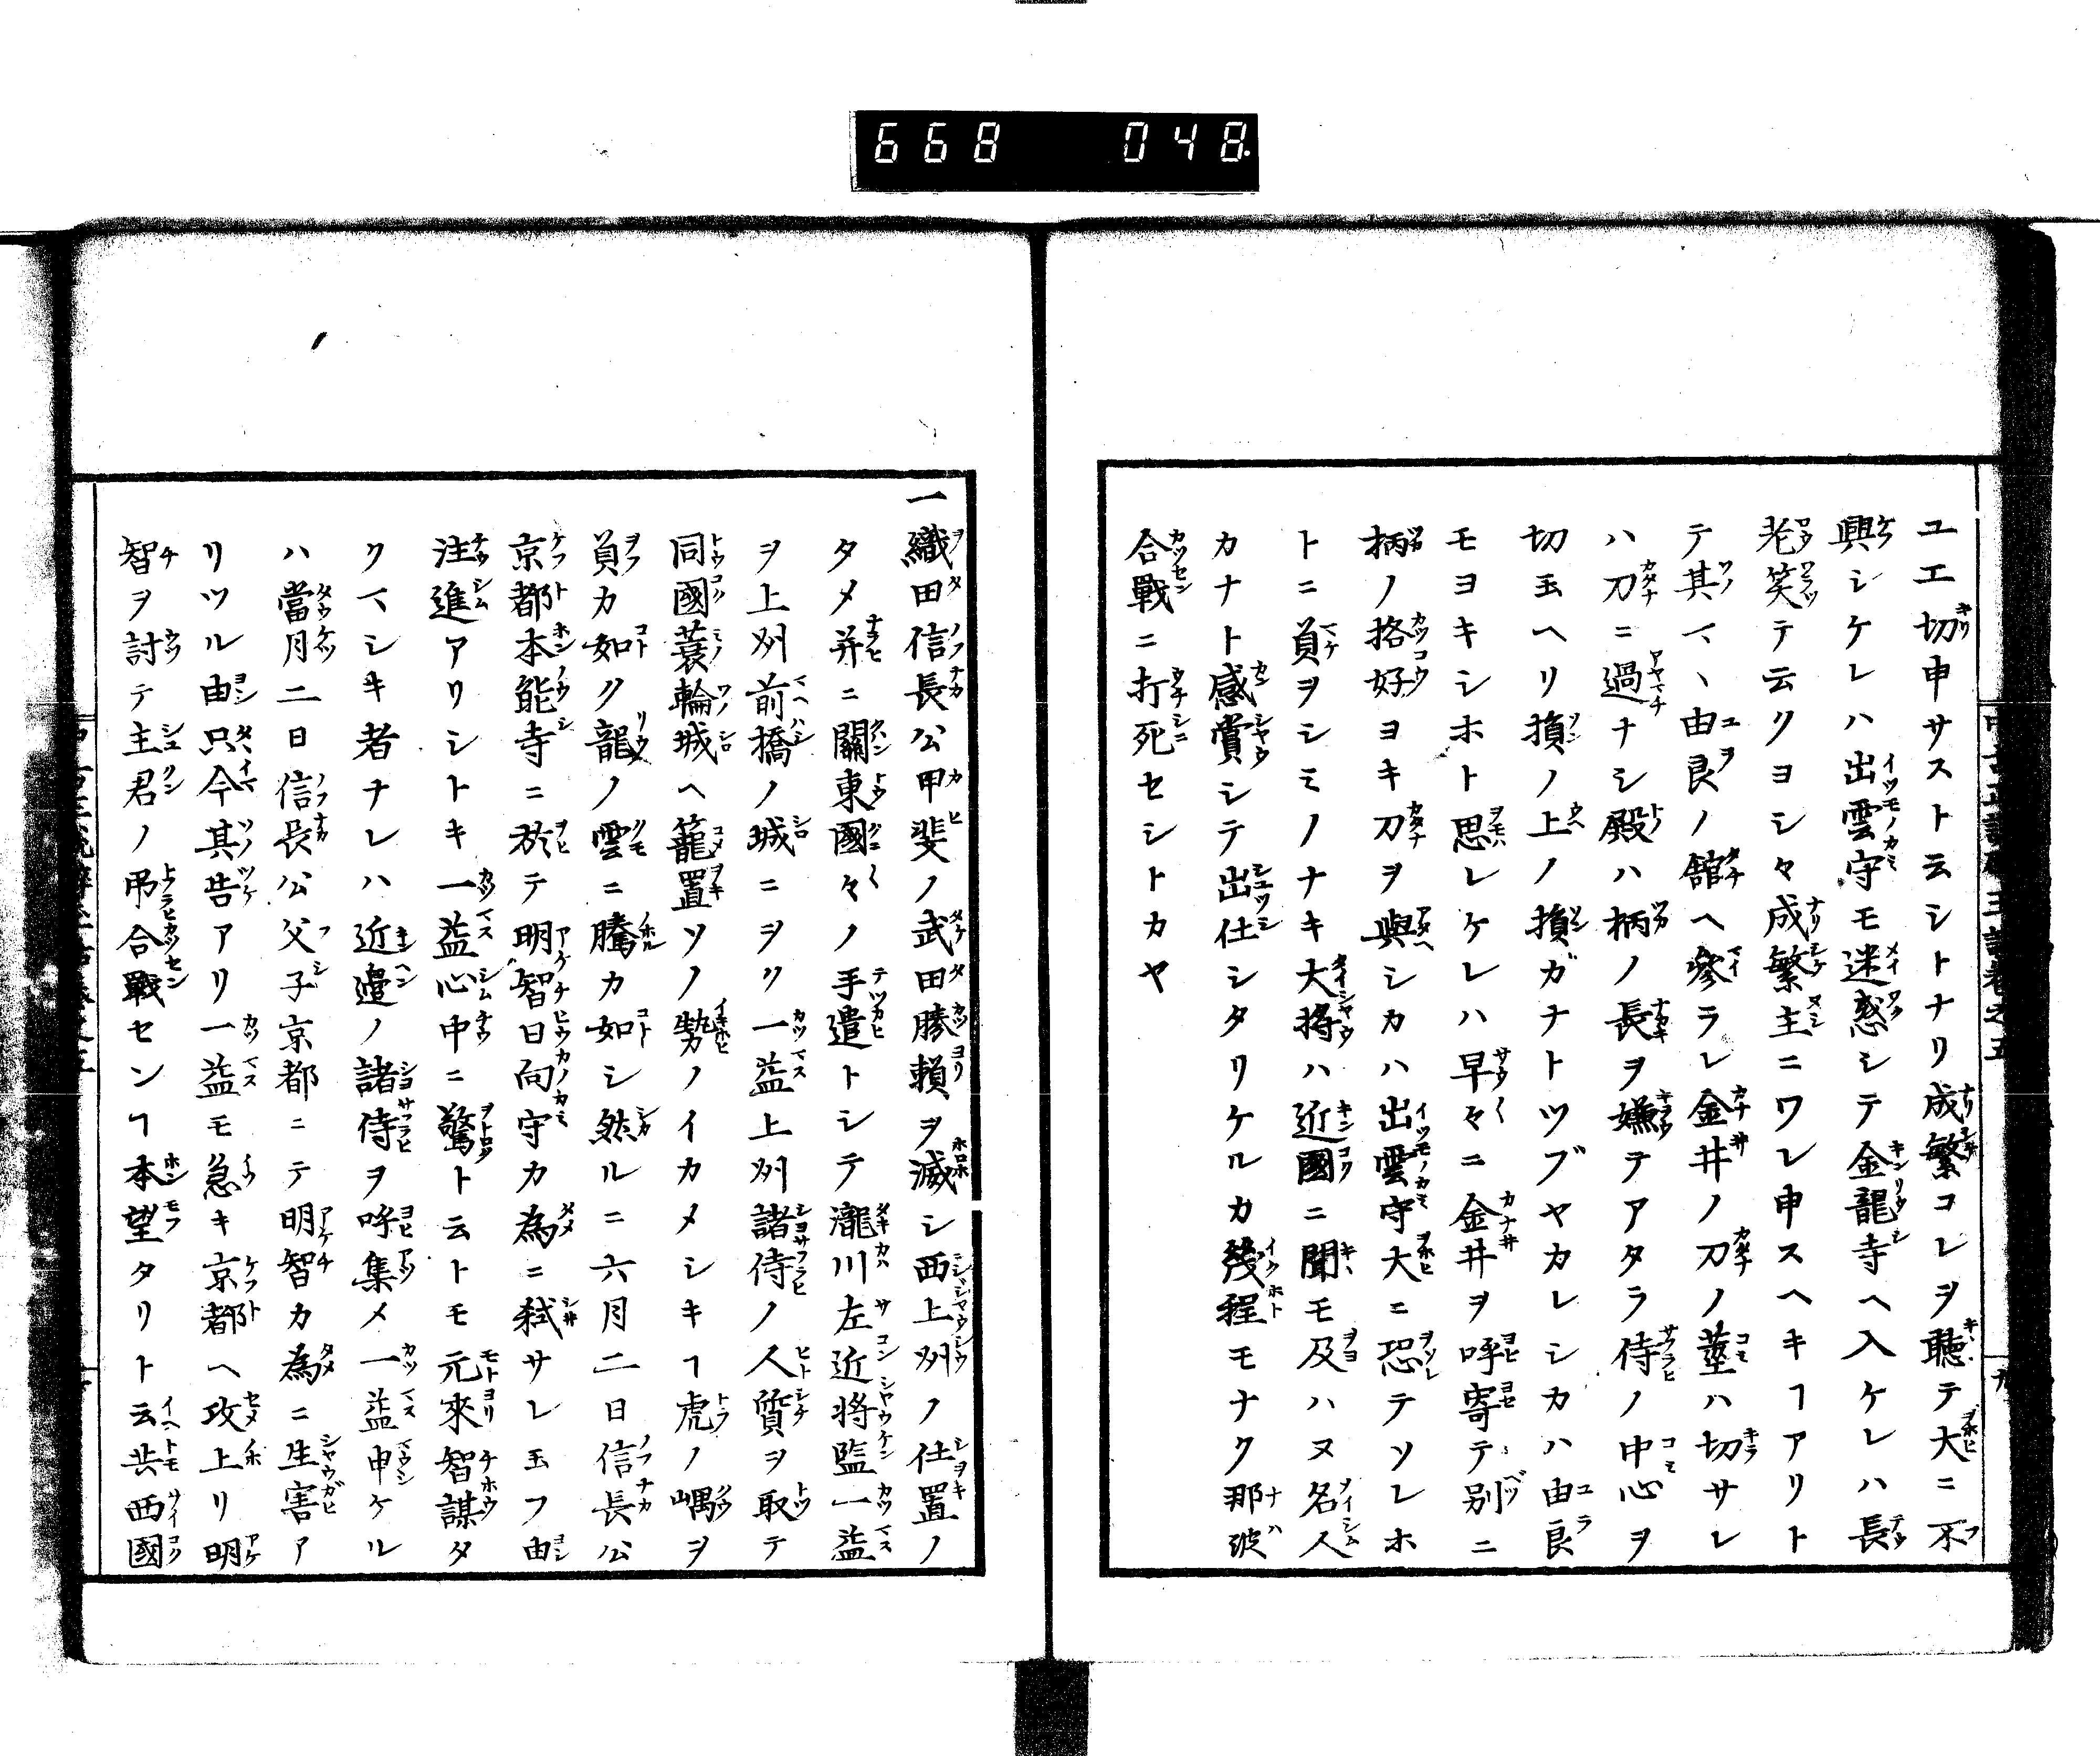 668 048
ユエ切申サストニ云シトナリ成繁コレヲ聴テ大ニ不
興シケレハ出雲守モ迷惑シテ金龍寺ヘ入ケレハ長
老笑テ云クヨシ々成繁主ニワレ申スヘキヿアリト
テ其マヽ由良ノ舘ヘ參ラレ金井ノ刀ノ莖ハ切サレ
ハ刀ニ過ナシ殿ハ柄ノ長ヲ嫌テアタラ侍ノ中心ヲ
切玉ヘリ損ノ上ノ損ガナトツブヤカレシカハ由良
モヨキシホト思レケレハ早々ニ金井ヲ呼寄テ別ニ
柄ノ挌好ヨキ刀ヲ與シカハ出雲守大ニ恐テソレホ
トニ負ヲシミノナキ大將ハ近國ニ聞モ及ハヌ名人
カナト感賞シテ出仕シタリケルカ幾程モナク那波
合戰ニ打死セシトカヤ
一織田信長公甲斐ノ武田勝頼ヲ滅シ西上州ノ仕置ノ
タメ并ニ關東國々ノ手遣トシテ瀧川左近将監一益
ヲ上州前橋ノ城ニヲク一益上州諸侍ノ人質ヲ取テ
同國蓑輪城ヘ籠置ソノ勢ノイカメシキヿ虎ノ嵎ヲ
負カ如ク龍ノ雲ニ騰カ如シ然ルニ六月二日信長公
京都本能寺ニ於テ明智日向守カ為ニ弑サレ玉フ由
注進アリシトキ一益心中ニ驚ト云トモ元來智謀タ
クマシキ者ナレハ近邉ノ諸侍ヲ呼集メ一益申ケル
ハ當月二日信長公父子京都ニテ明智カ為ニ生害ア
リツル由只今其告アリ一益モ急キ京都ヘ攻上リ明
智ヲ討テ主君ノ吊合戰センヿ本望タリト云共西國